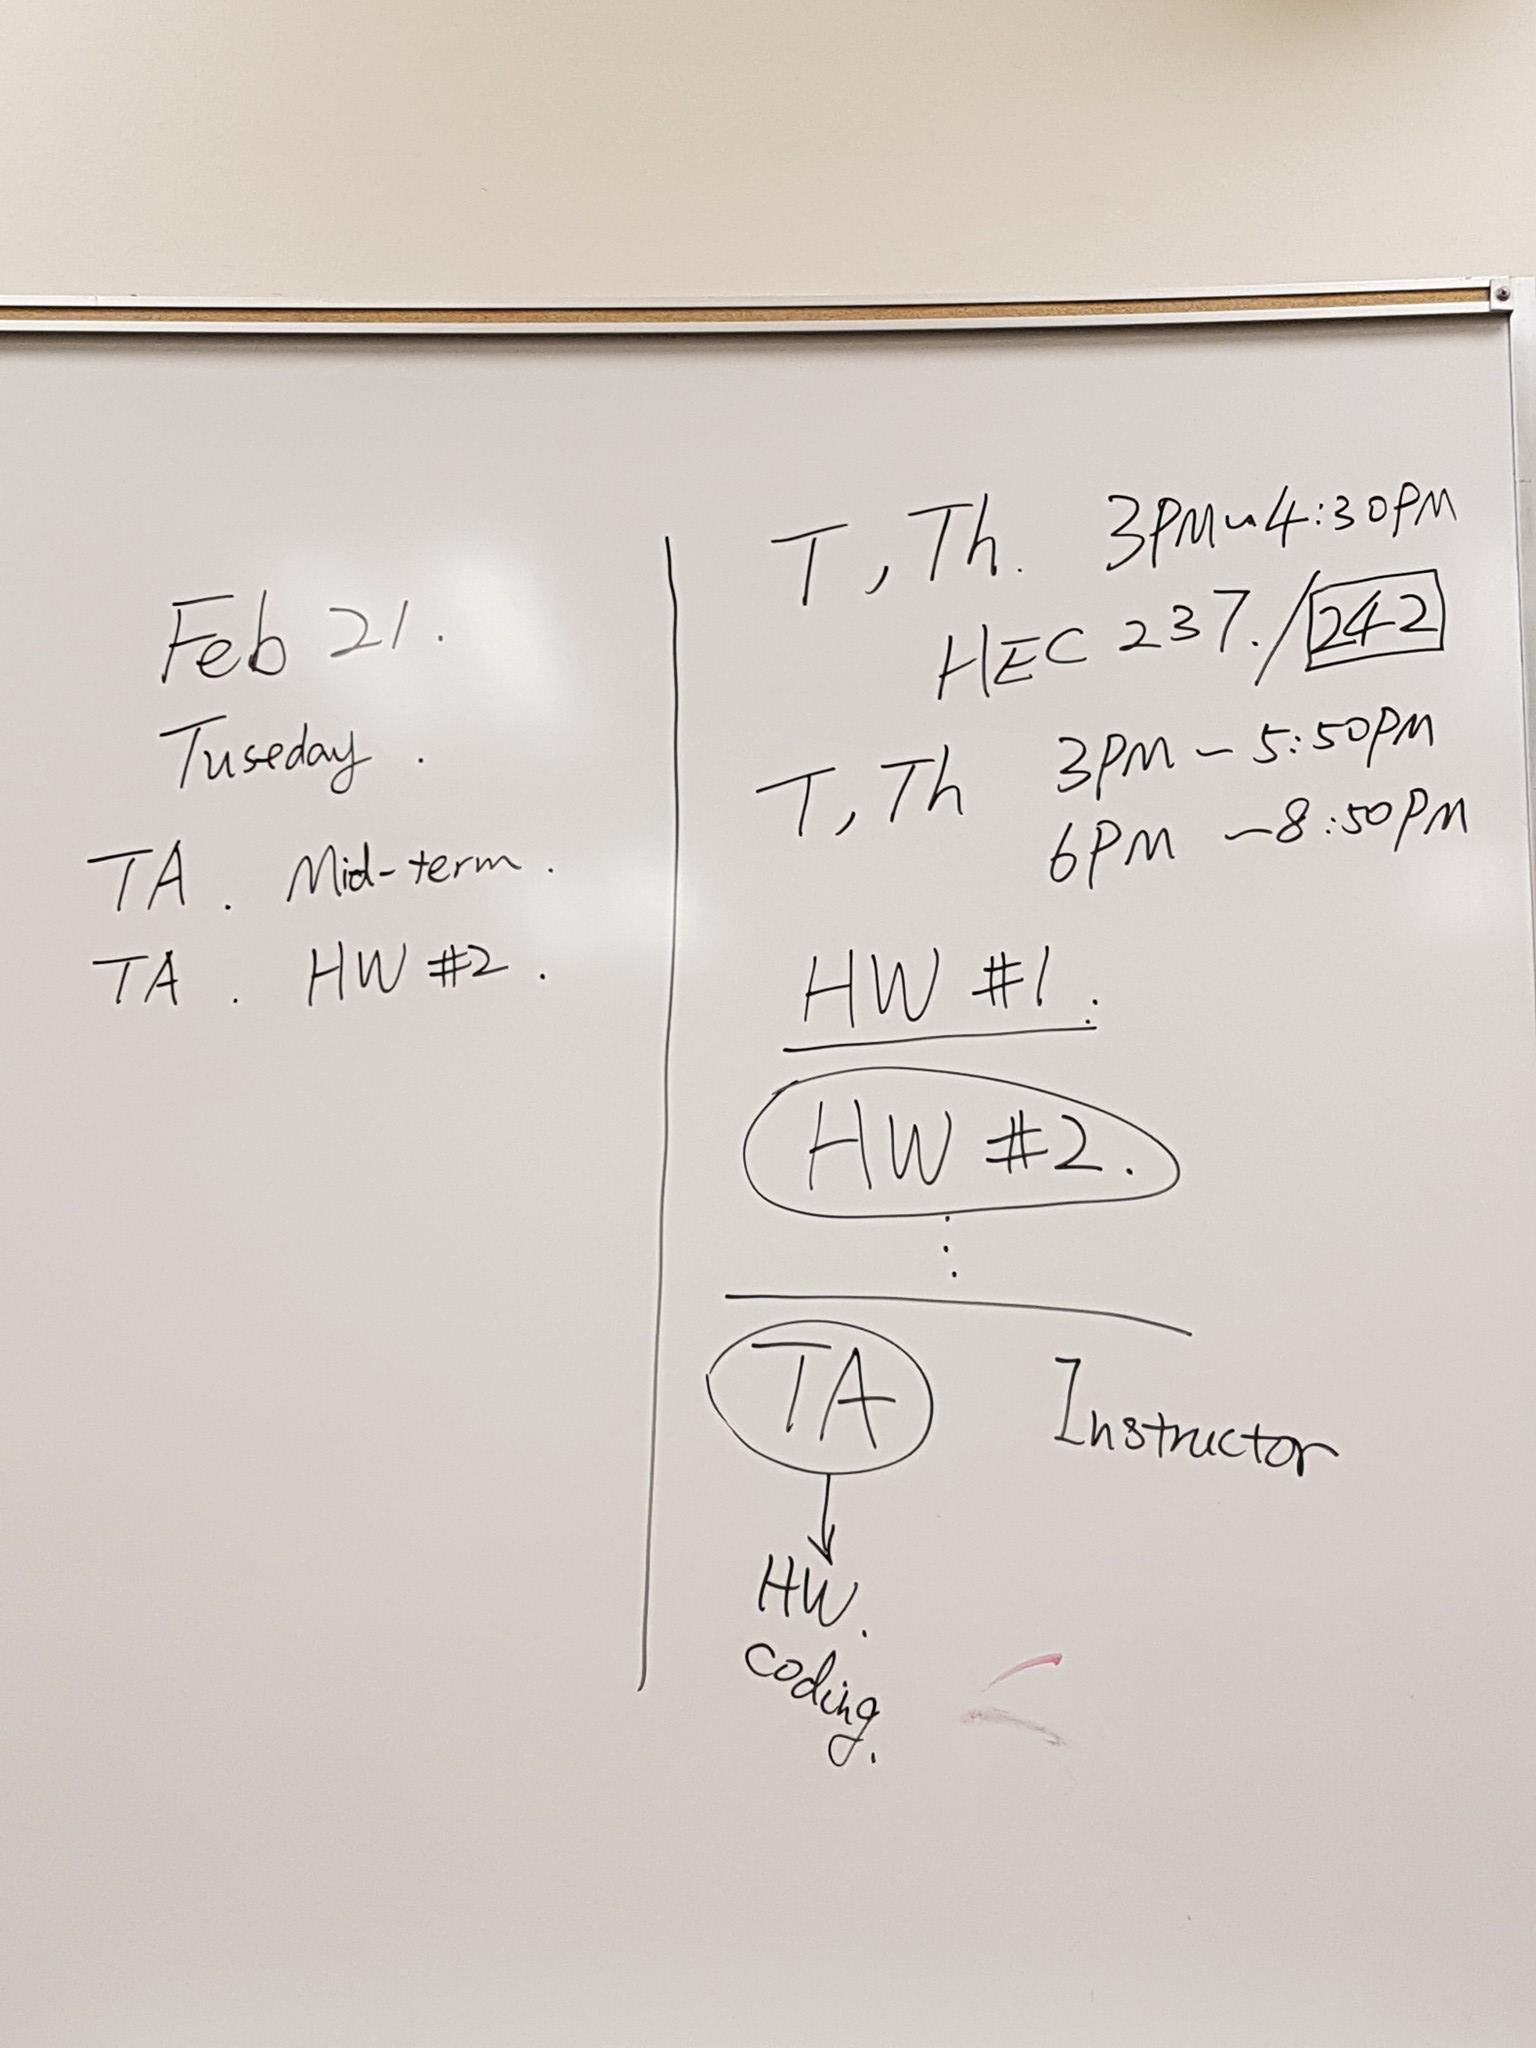 Feb 21.
Tuseday.
TA. Mid-term.
TA. HW #2.
T, Th. 3PM~4:30PM
HEC 237./242
T, Th 3PM-5:50PM
6PM-8:50PM
HW #1.
HW #2.
TA Instructor
HW.
coding.